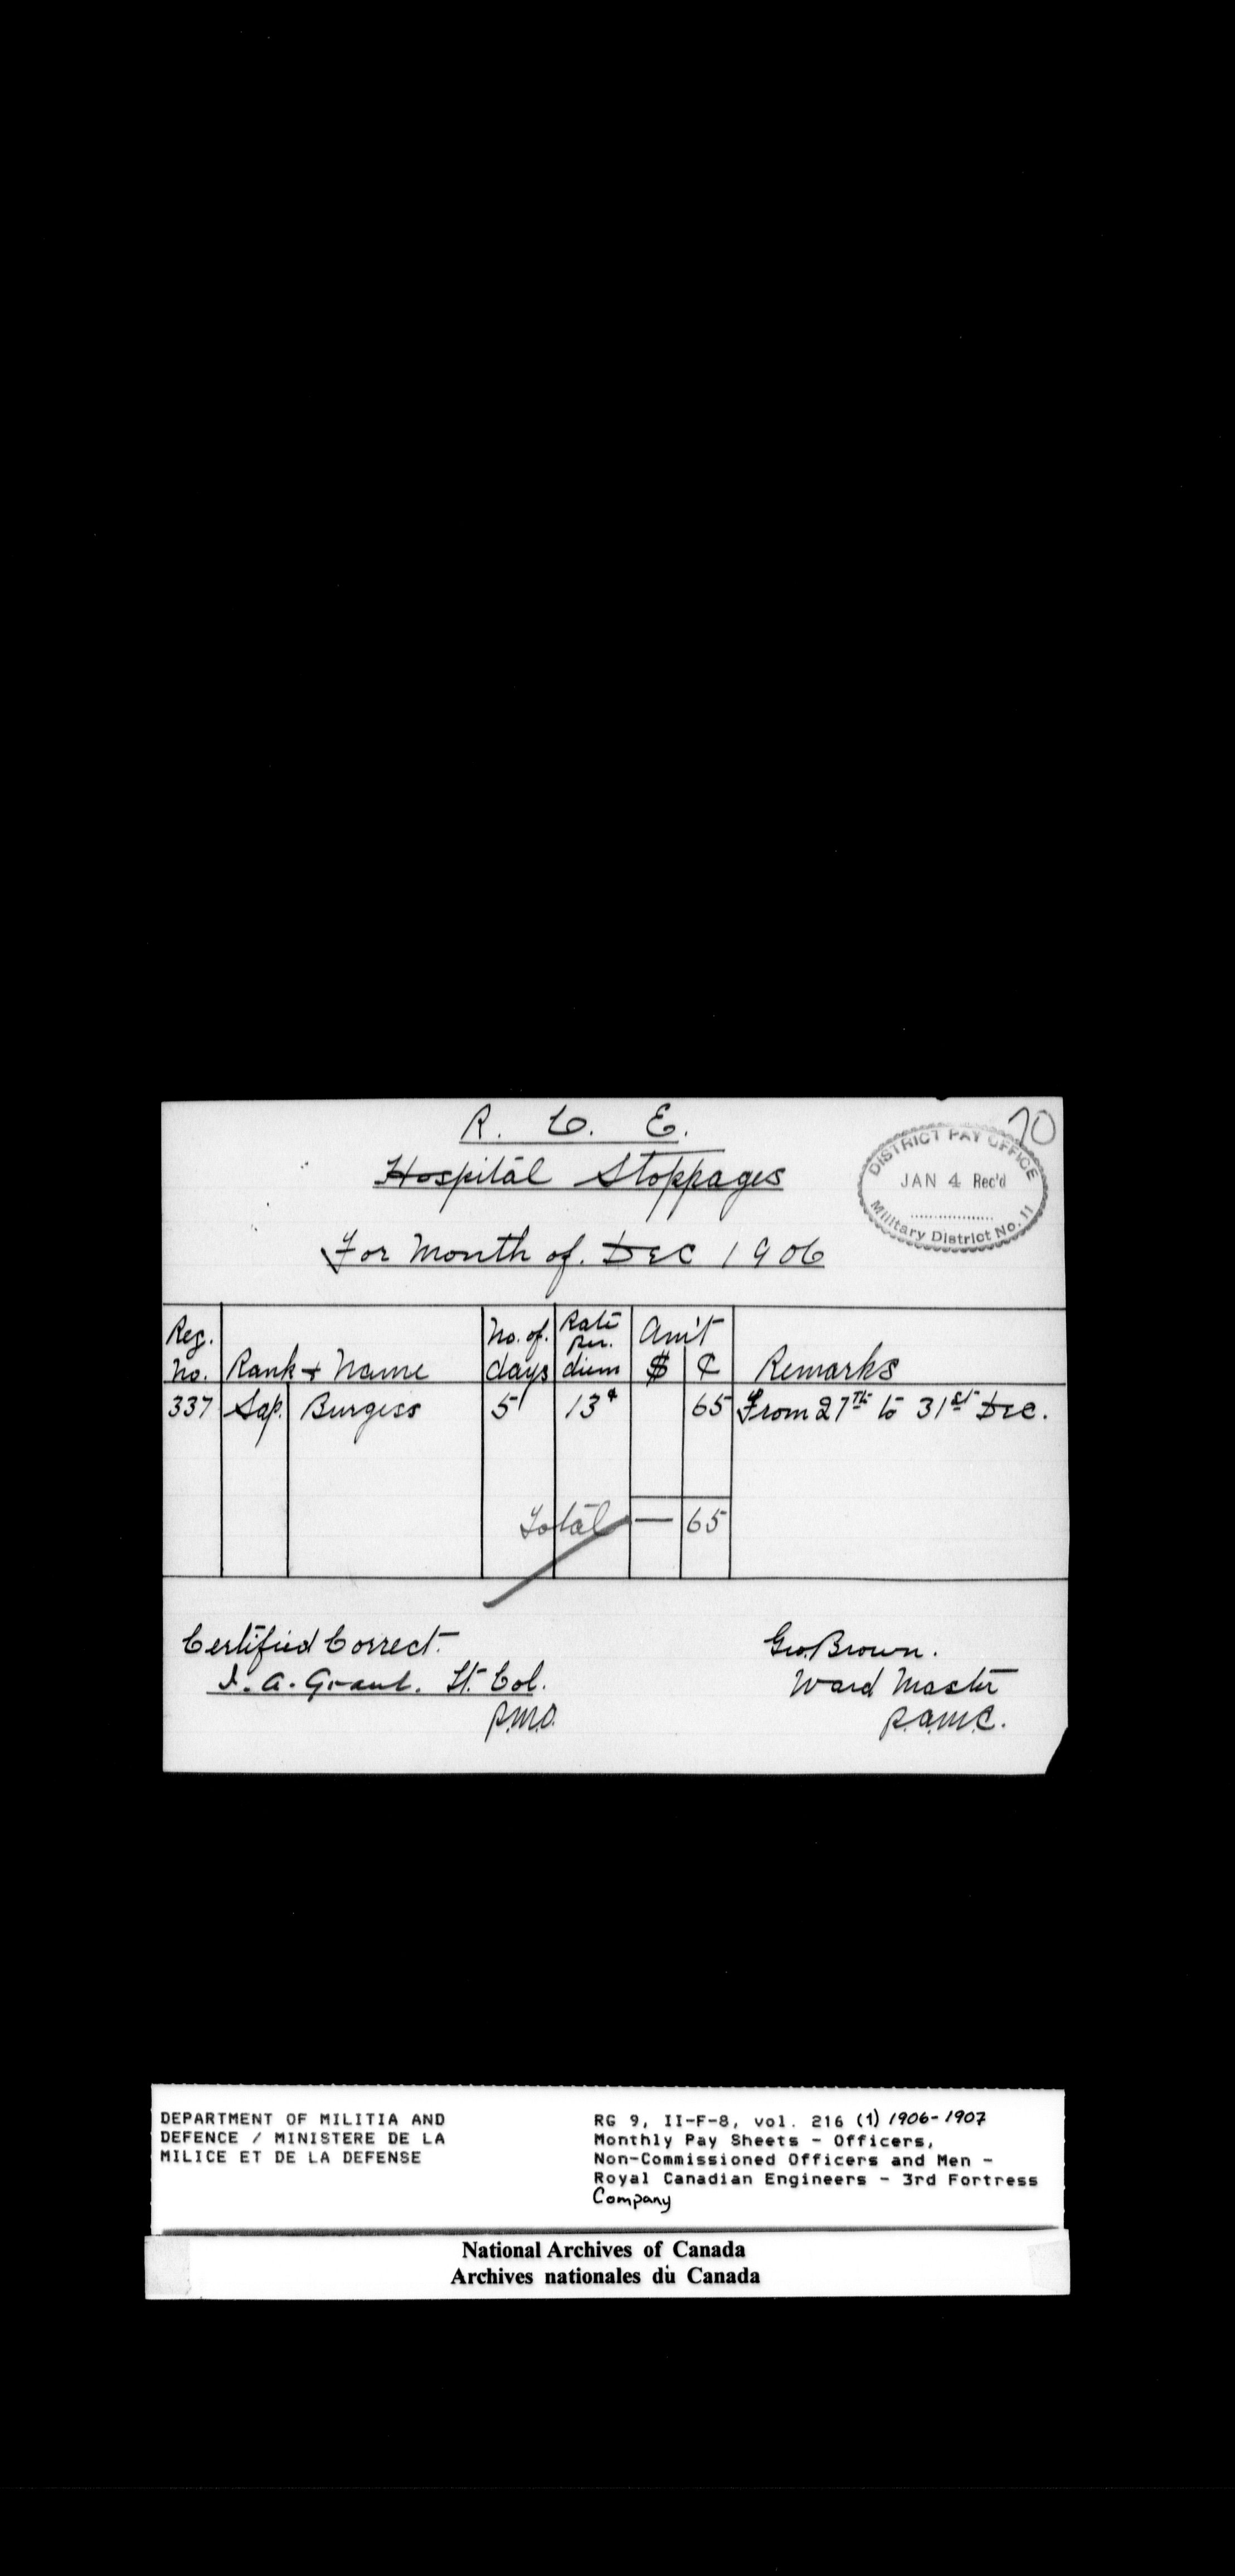 R. C. E.
70
Hospital Stoppages
DISTRICT PAY OFFICE
JAN 4 Rec'd
Military District No. 11
For Month of. Dec 1906
Reg. No. Rank + Name No. of. days Rate per. diem Am't $ ¢ Remarks
337 Sap. Burgess 5 13¢ 65 From 27th to 31st Dec.
Total — 65
Certified Correct.
Geo. Brown.
J. A. Grant. Lt. Col.
Ward Master
P.M.O.
P.A.M.C.
DEPARTMENT OF MILITIA AND
DEFENCE / MINISTERE DE LA
MILICE ET DE LA DEFENSE
RG 9, II-F-8, vol. 216 (1) 1906-1907
Monthly Pay Sheets - Officers,
Non-Commissioned Officers and Men -
Royal Canadian Engineers - 3rd Fortress
Company
National Archives of Canada
Archives nationales du Canada